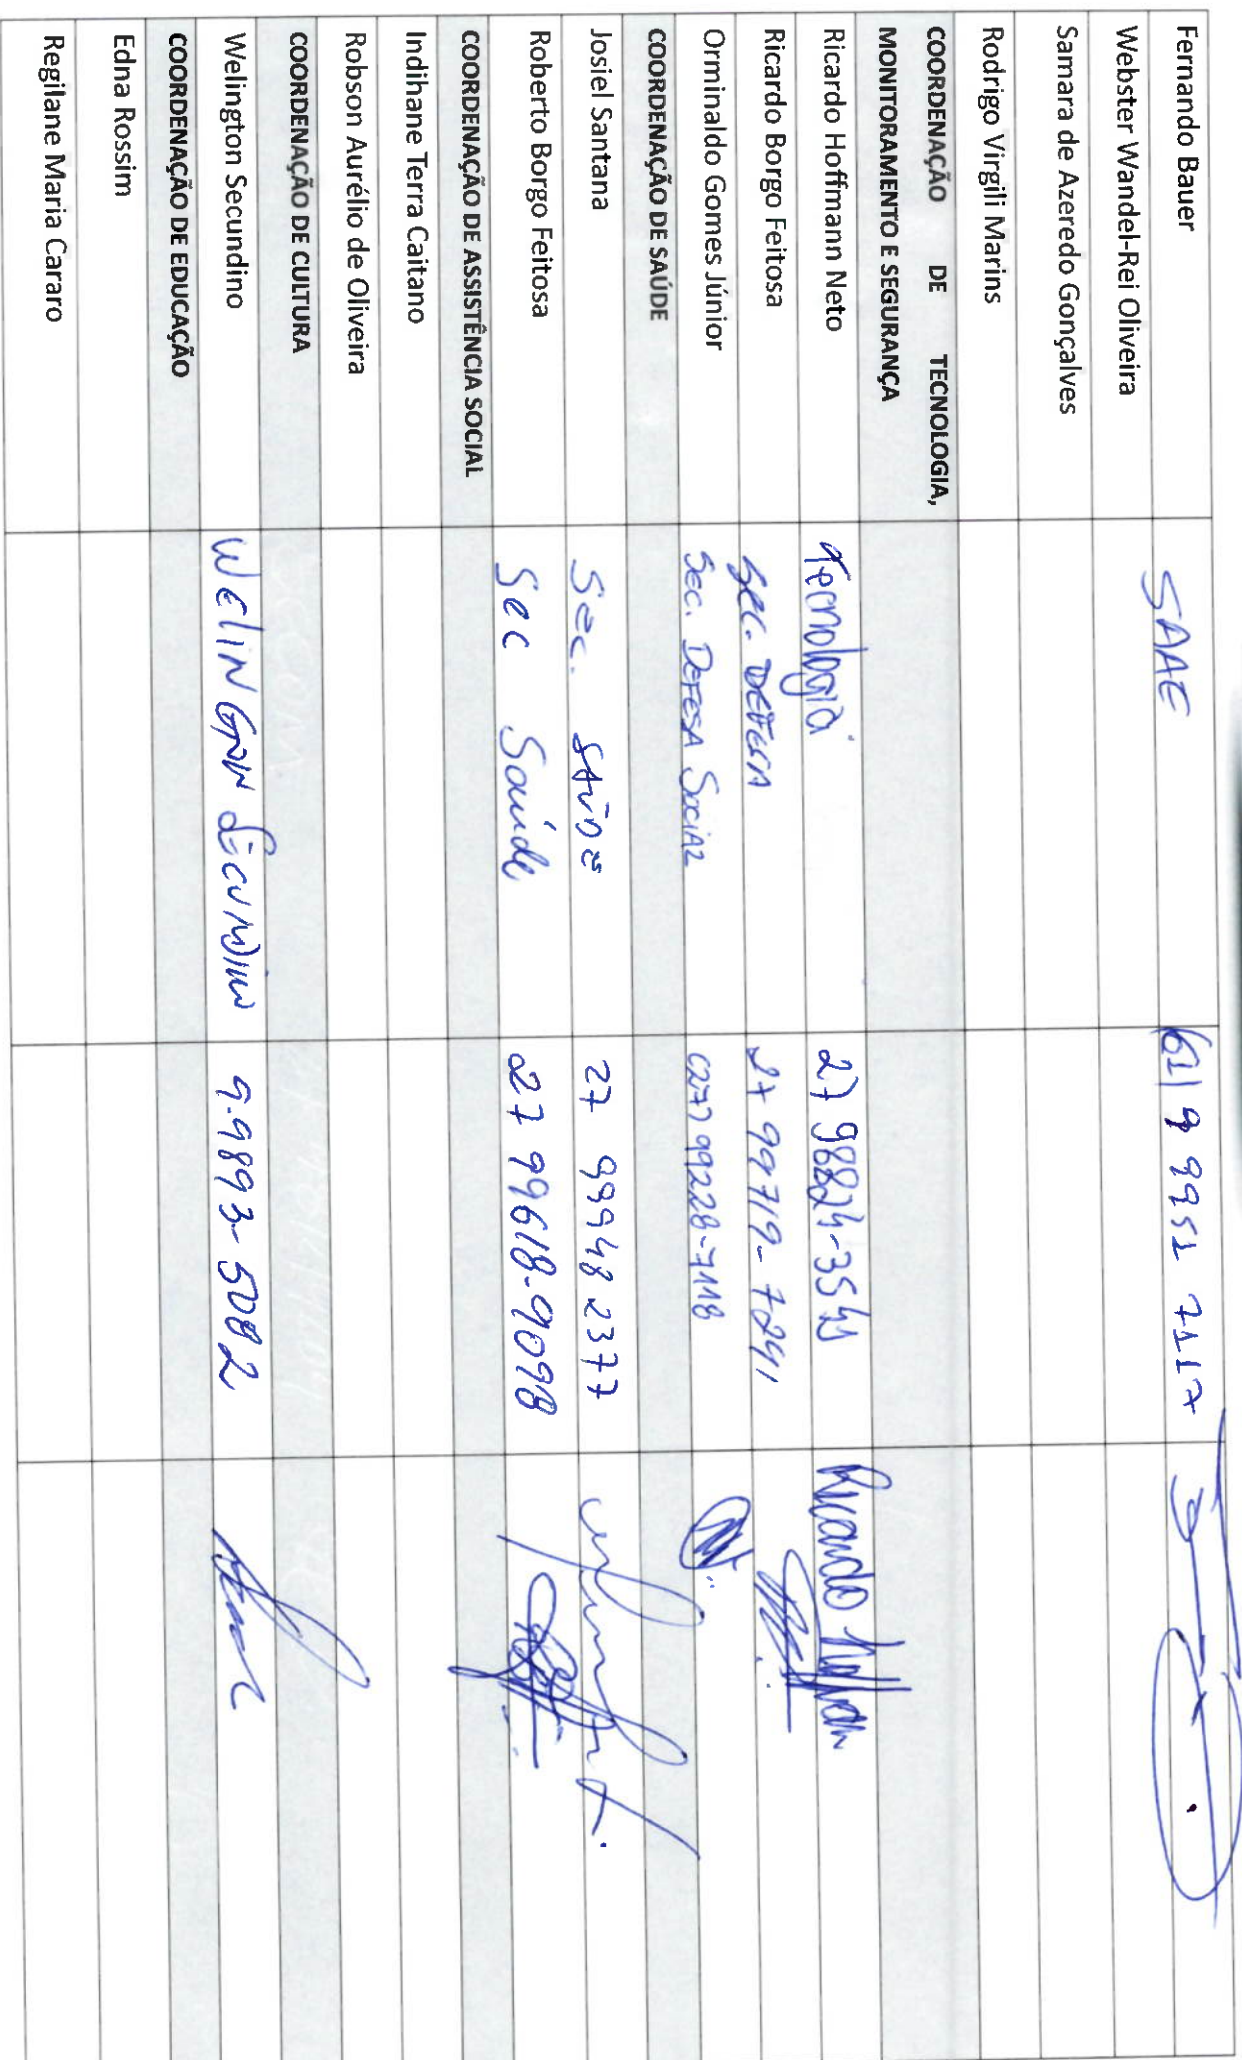 Fernando Bauer SAAE 61) 9 9951 7117
Webster Wandel-Rei Oliveira
Samara de Azeredo Gonçalves
Rodrigo Virgili Marins
COORDENAÇÃO DE TECNOLOGIA,
MONITORAMENTO E SEGURANÇA
Ricardo Hoffmann Neto Tecnologia 27 98824-3541 Ricardo Hoffmann
Ricardo Borgo Feitosa Sec. DEFESA 27 99719-7291
Orminaldo Gomes Júnior Sec. DEFESA SOCIAL (27) 99228-7118
COORDENAÇÃO DE SAÚDE
Josiel Santana Sec. SAÚDE 27 99948 2377
Roberto Borgo Feitosa Sec Saúde 27 99618-9098
COORDENAÇÃO DE ASSISTÊNCIA SOCIAL
Indihane Terra Caitano
Robson Aurélio de Oliveira
COORDENAÇÃO DE CULTURA
Welington Secundino WELINGTON SECUNDINO 9.9893-5082
COORDENAÇÃO DE EDUCAÇÃO
Edna Rossim
Regilane Maria Cararo